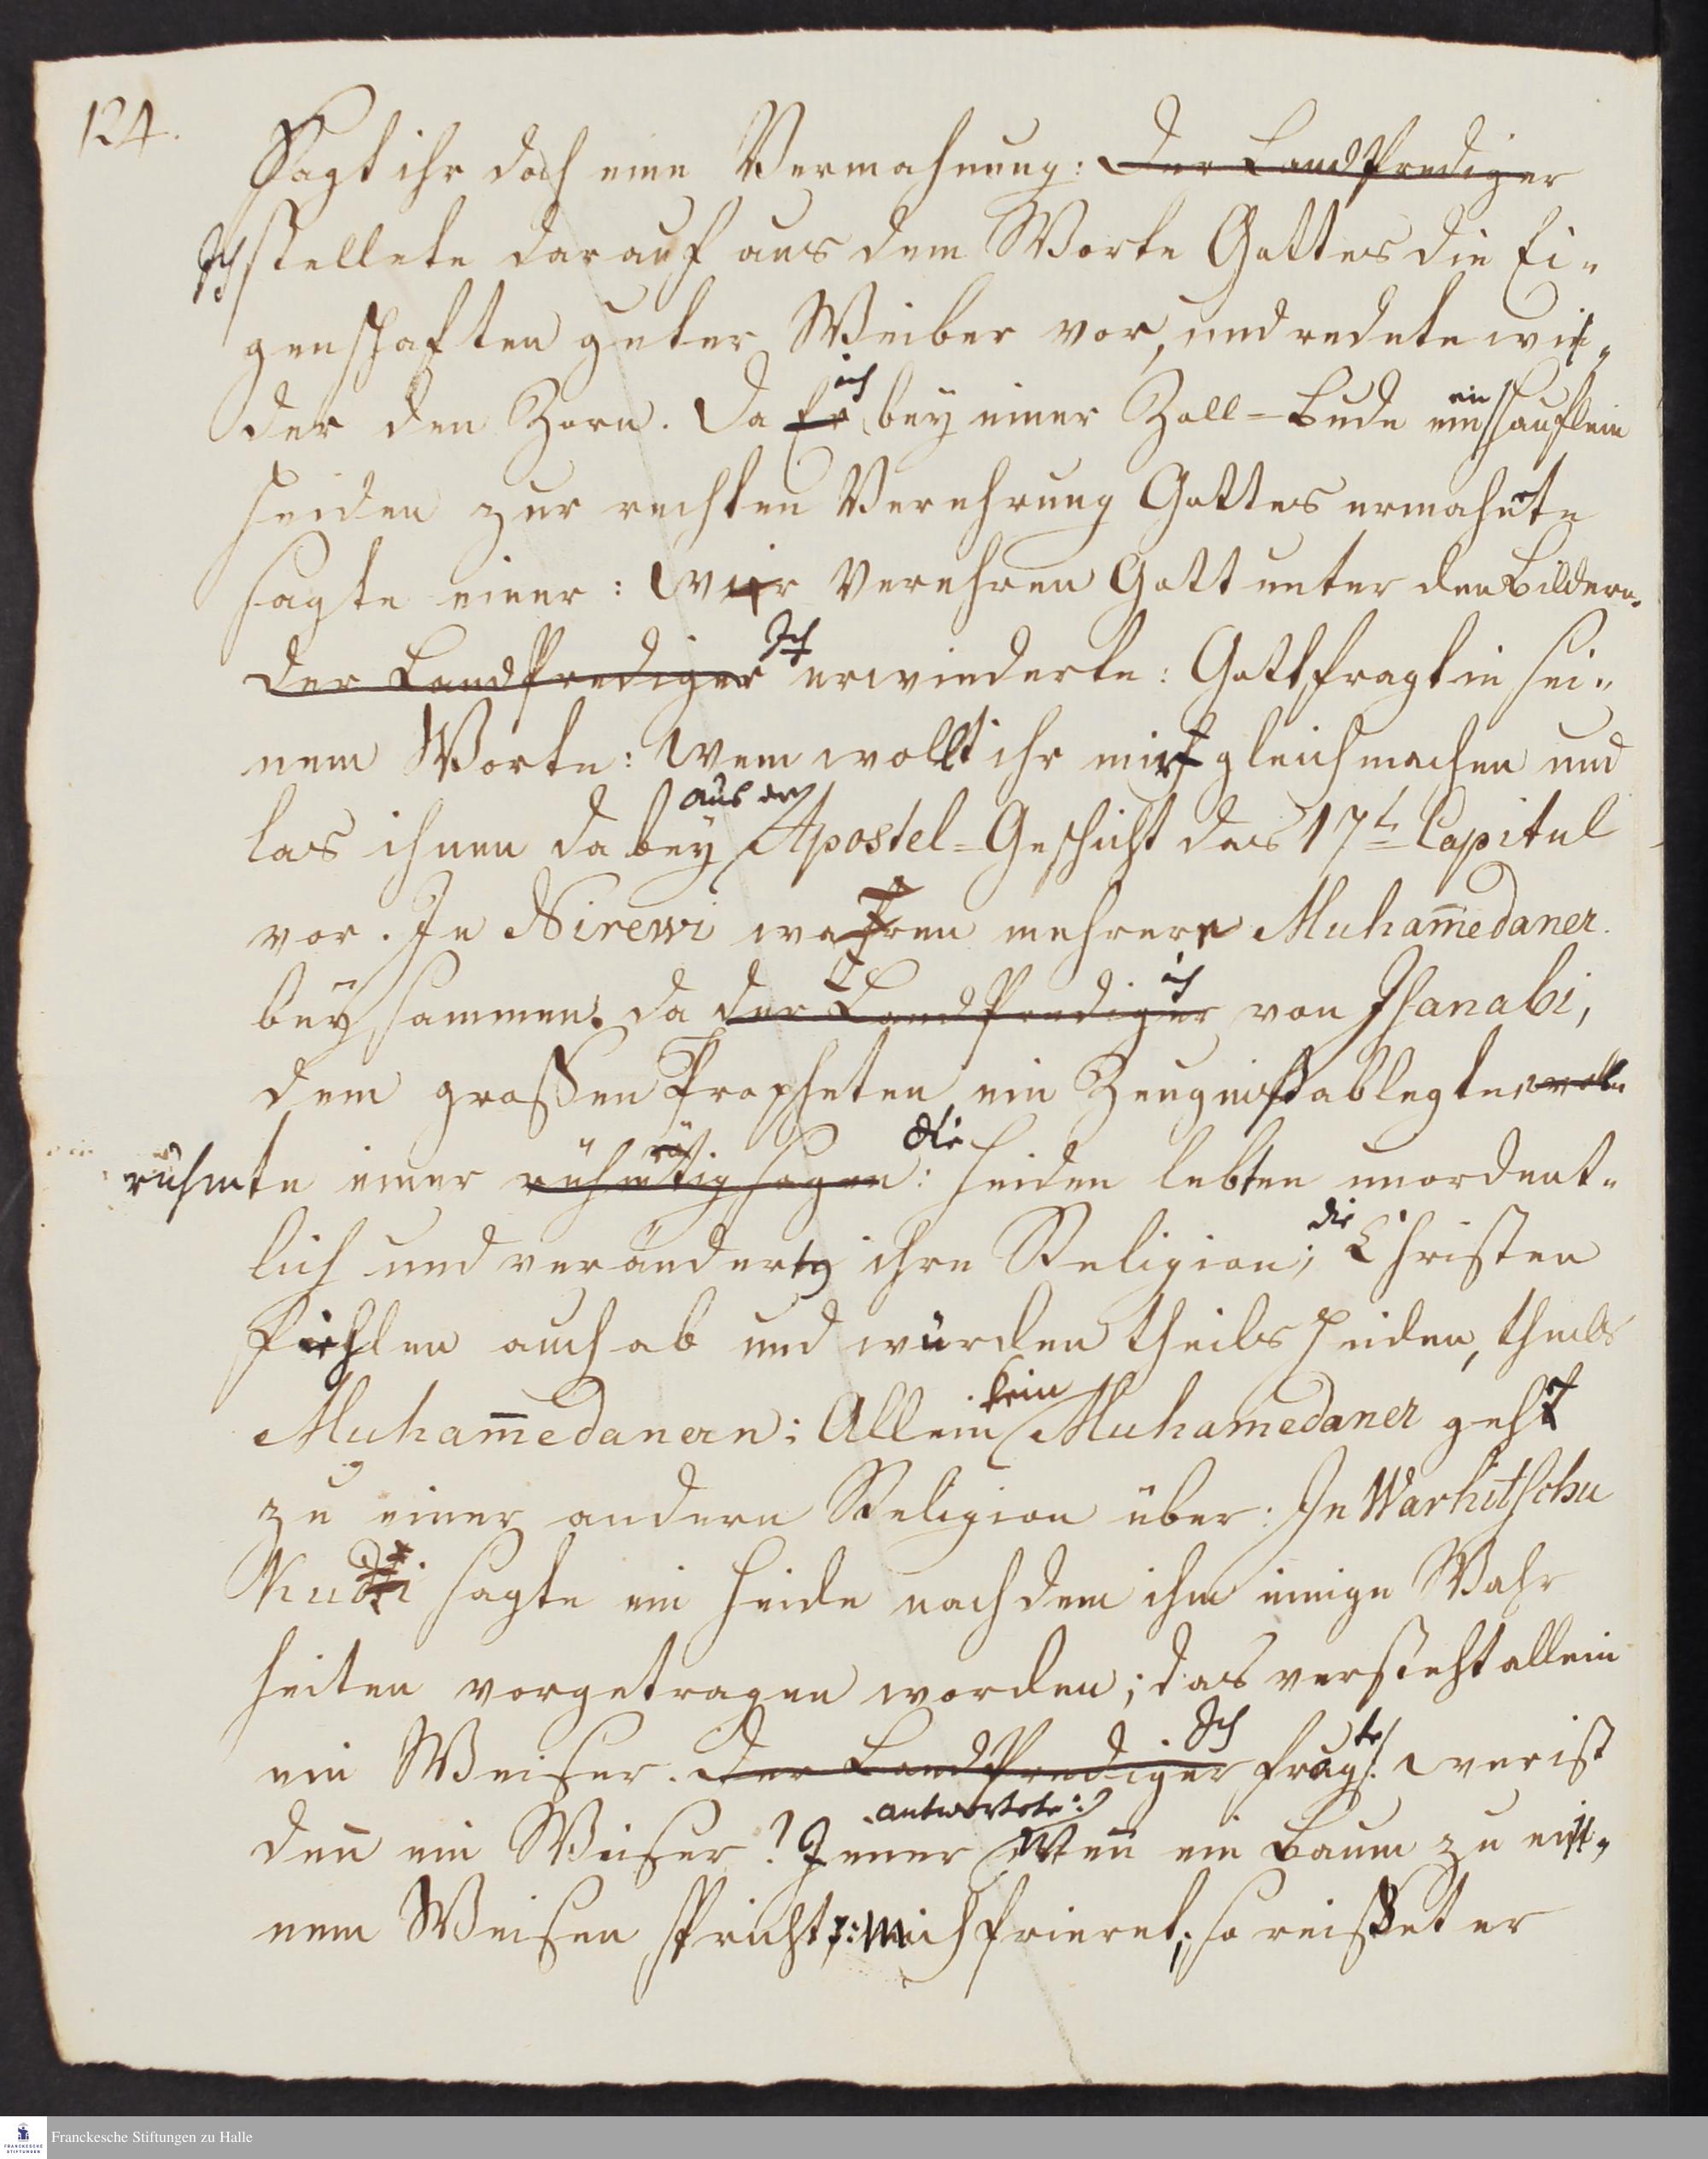 124.
Sagt ihr doch eine Vermahnung: Der Landprediger
Ich stellete darauf aus dem Worte Gottes die Ei-
genschaften guter Weiber vor, und redete wi-
der den Zorn. Da Er ich bey einer Zoll-Bude ein Häuflein
Heiden zur rechten Verehrung Gottes ermahnte
sagte einer: Wir verehren Gott unter den Bildern.
Der Landprediger Ich erwiederte: Gott fragt in sei-
nem Worte: Wem wollt ihr mich gleich machen und
las ihnen dabey aus der Apostel-Geschicht das 17te Capitul
vor. In Nirewi waren mehrere Muham̄edaner
beysammen. da der Landprediger ich von Isanabi,
dem großen Propheten ein Zeugniß ablegte, wolte
rühmte einer rühmräthig sagen: die Heiden lebten unordent-
lich und veränderten ihre Religion; die Christen
fiehlen auch ab und würden theils Heiden, theils
Muham̄edanern: Allein kein Muhamedaner geht
zu einer andern Religion über: In Warhitschu
Kudi sagte ein Heide nach dem ihm einige Wahr
heiten vorgetragen worden; das versteht allein
ein Weiser. Der Landprediger Ich fragte: wer ist
den̄ ein Weiser? Jener antwortete: Wen̄ ein Baum zu ei-
nem Weisen spricht: Mich frieret; so reißet er
Franckesche Stiftungen zu Halle